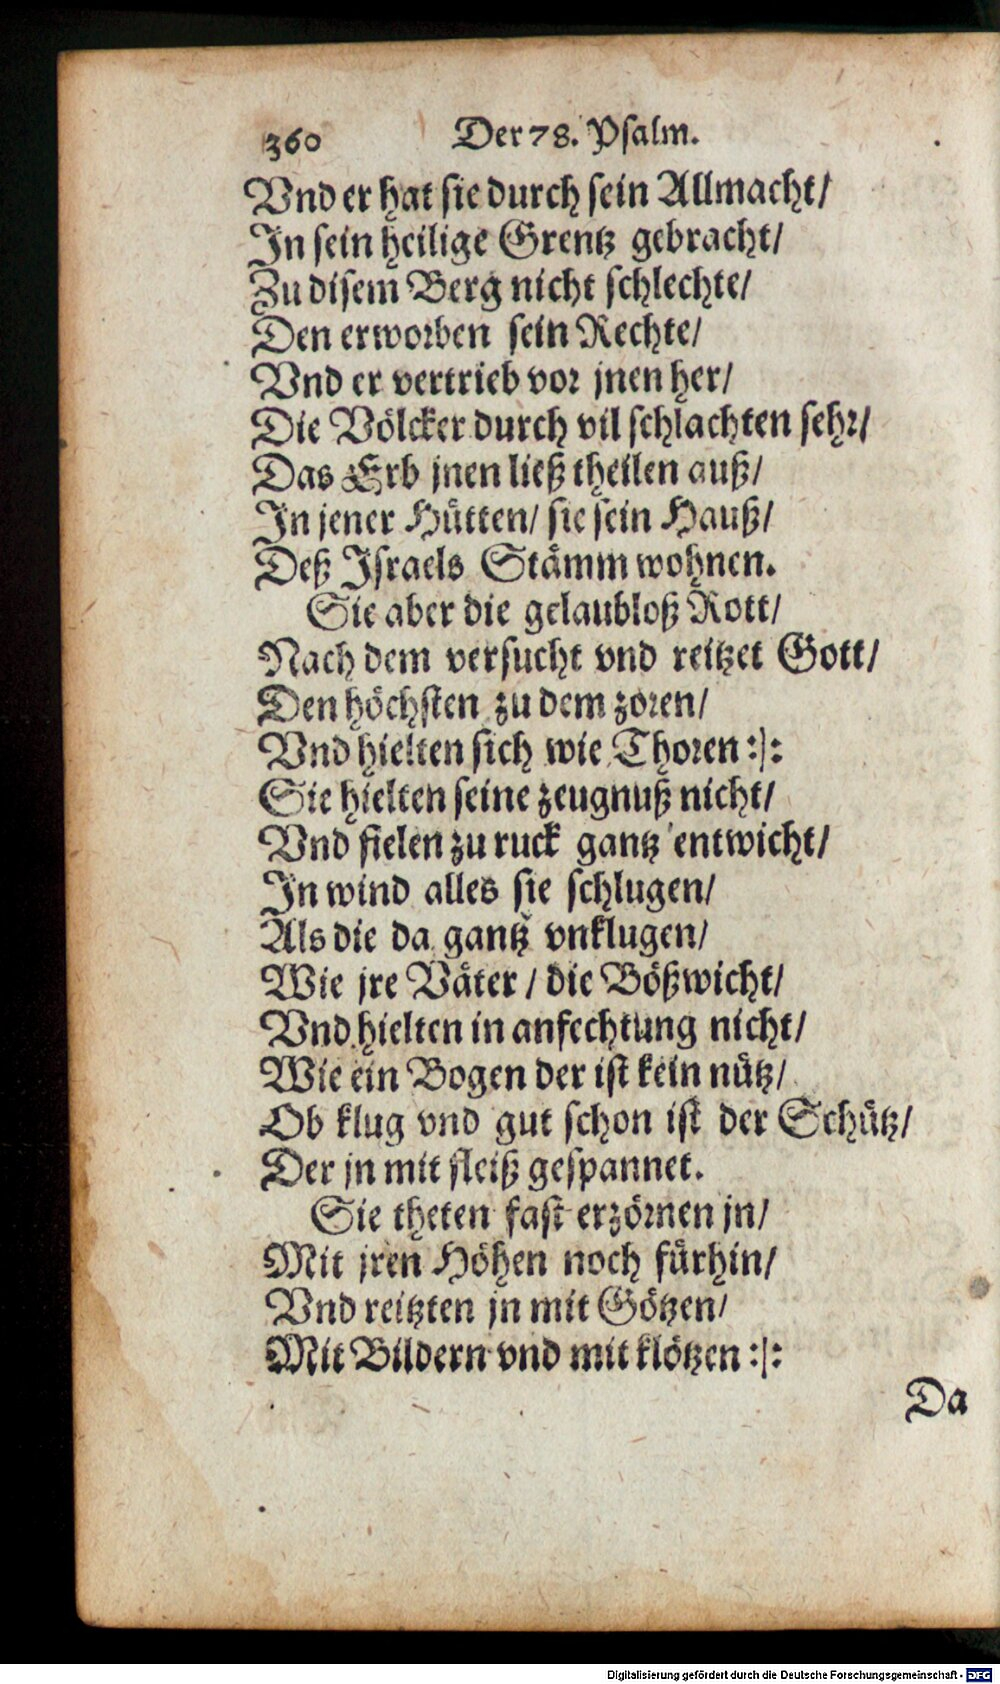 360 Der 78. Psalm.
Vnd er hat sie durch sein Allmacht/
In sein heilige Grentz gebracht/
Zu disem Berg nicht schlechte/
Den erworben sein Rechte/
Vnd er vertrieb vor jnen her/
Die Völcker durch vil schlachten sehr/
Das Erb jnen ließ theilen auß/
In jener Hütten/ sie sein Hauß/
Deß Israels Stämm wohnen.
Sie aber die gelaubloß Rott/
Nach dem versucht vnd reitzet Gott/
Den höchsten zu dem zoren/
Vnd hielten sich wie Thoren :|:
Sie hielten seine zeugnuß nicht/
Vnd fielen zu ruck gantz entwicht/
In wind alles sie schlugen/
Als die da gantz vnklugen/
Wie jre Väter / die Bößwicht/
Vnd hielten in anfechtung nicht/
Wie ein Bogen der ist kein nütz/
Ob klug vnd gut schon ist der Schütz/
Der jn mit fleiß gespannet.
Sie theten fast erzörnen jn/
Mit jren Höhen noch fürhin/
Vnd reitzten jn mit Götzen/
Mit Bildern vnd mit klötzen :|:
Da
Digitalisierung gefördert durch die Deutsche Forschungsgemeinschaft - DFG